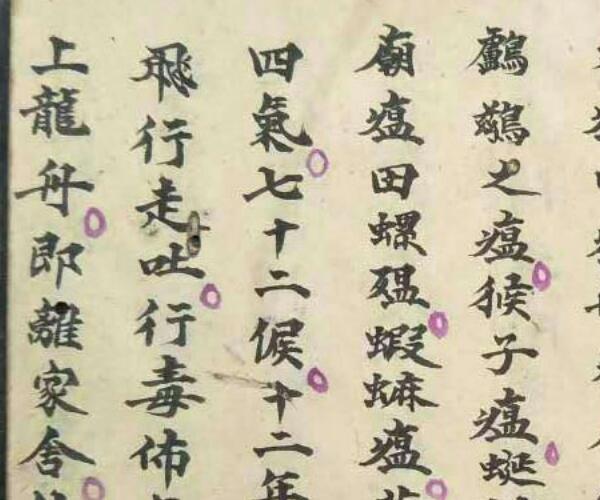 鸕鷀之瘟猴子瘟蜒
廟瘟田螺瘟蝦蟆瘟
四氣七十二候十二年
飛行走吐行毒佈
上龍舟即離家舍